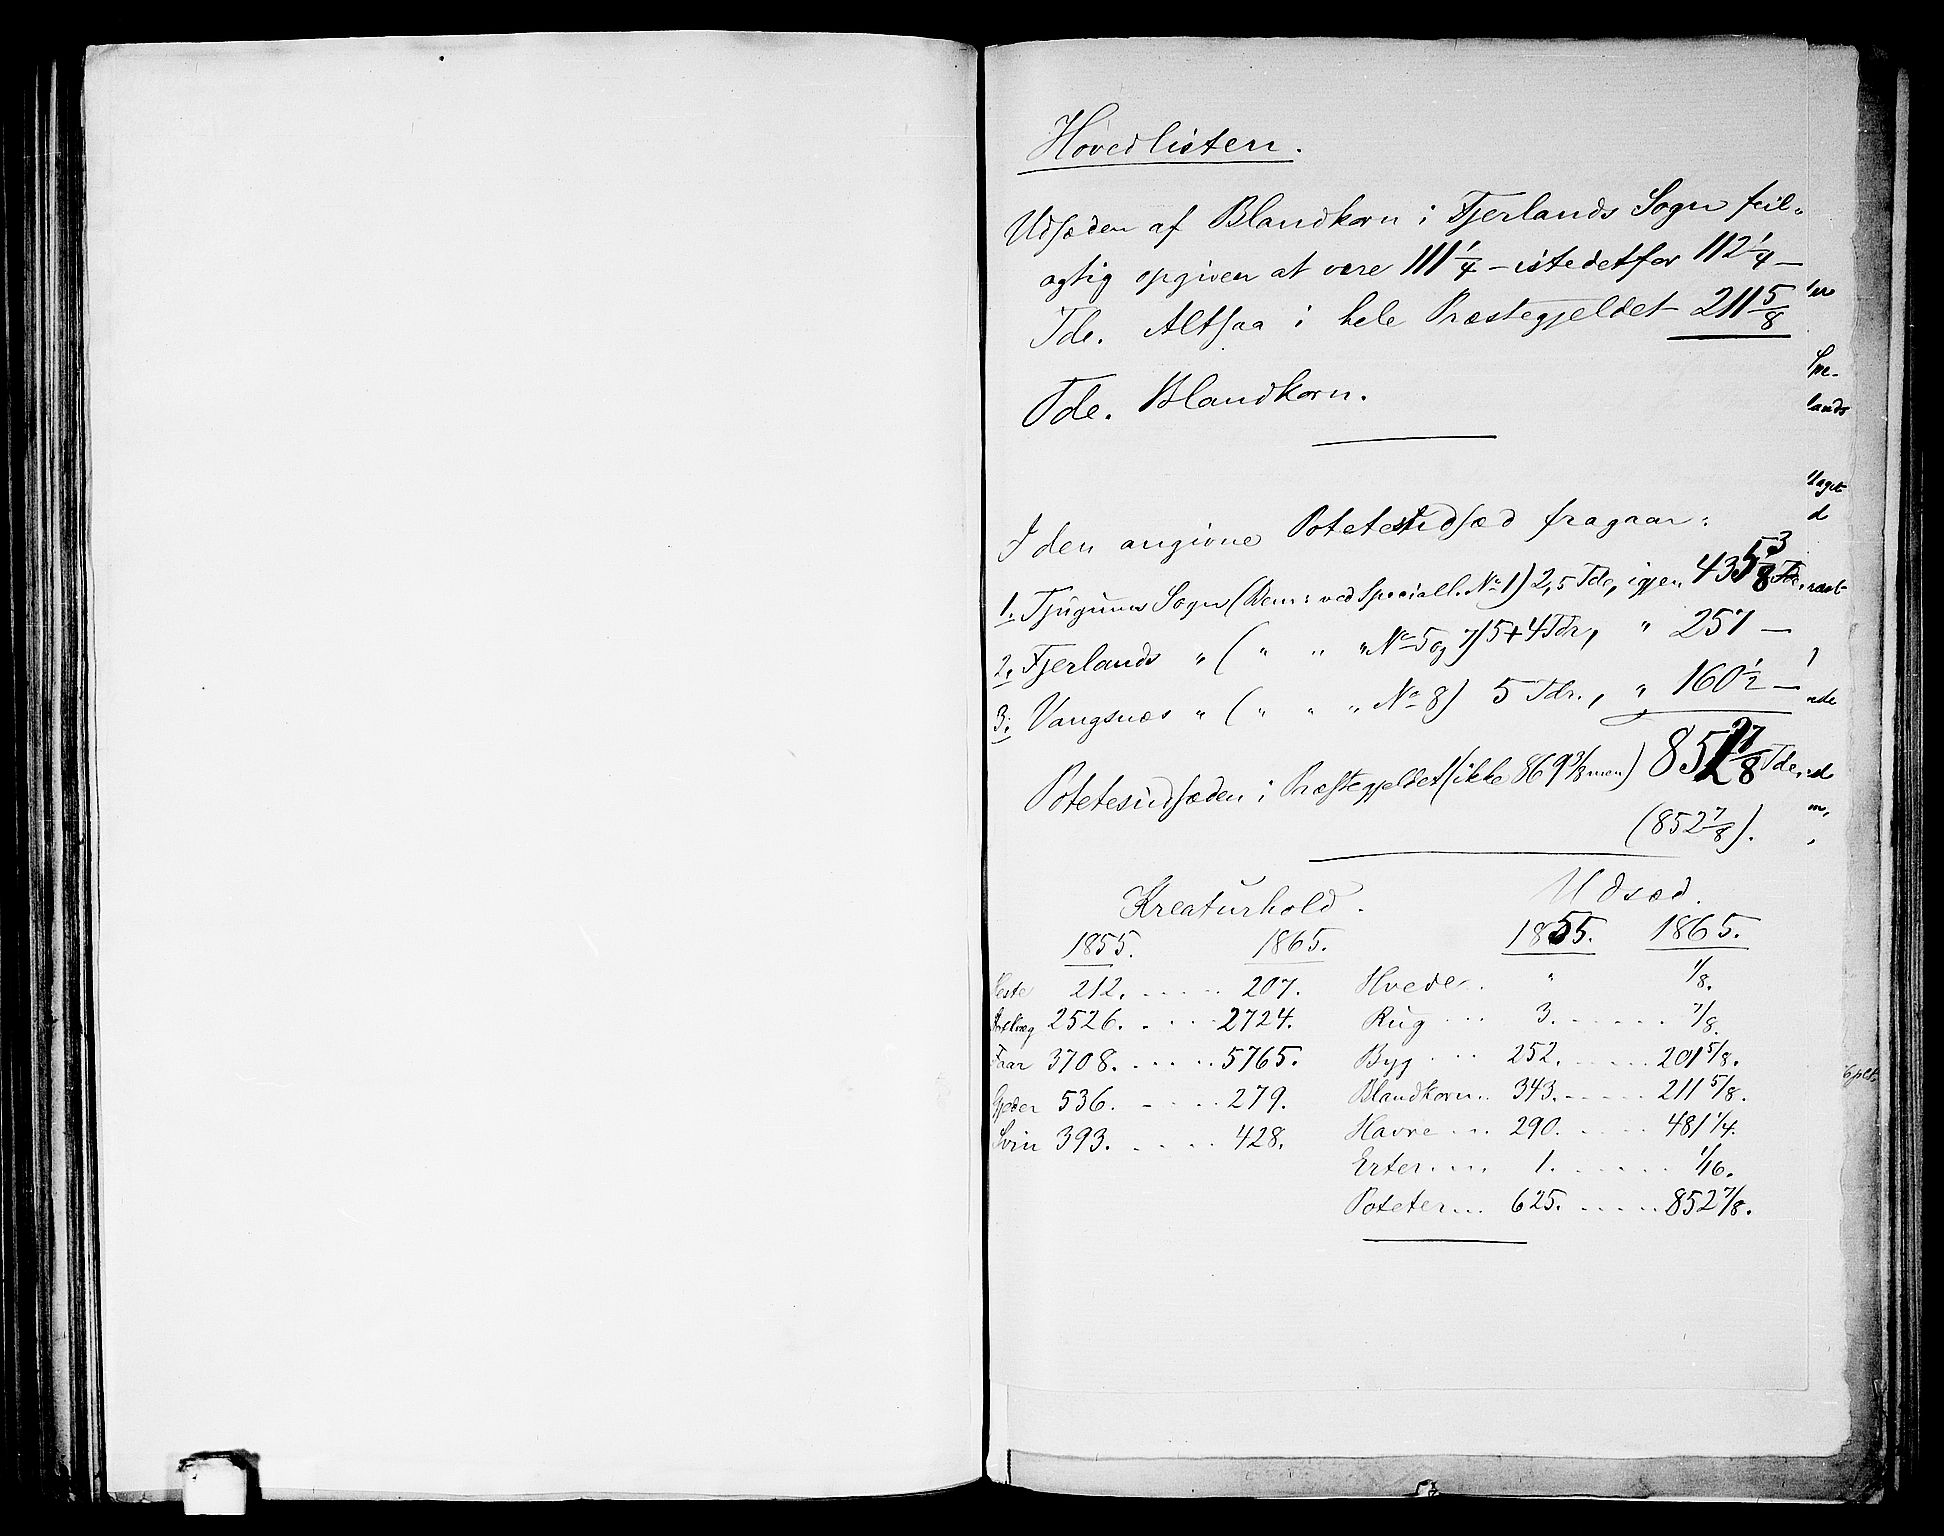 Hovedlisten.
Udsæden af Blandkorn i Fjerlands Sogn feil-
agtig opgiven at være 111 1/4 - istedetfor 112 1/4 -
Tde. Altsaa i hele Præstegjeldet 211 5/8
Tde. Blandkorn.
I den angivne Potetesudsæd fragaar:
1. Tjugums Sogn (Bem: ved Speciall. No 1) 2,5 Tde, igjen 435 3/8 Tde.
2. Fjerlands " ( " " " No 5 og 7) 5+4 Tdr, " 257 -
3. Vangsnæs " ( " " " No 8) 5 Tdr., " 160 1/2 -
Potetesudsæden i Præstegjeldet (ikke 869 3/8 men) 852 7/8 Tde.
(852 7/8).
Kreaturhold. Udsæd.
1855. 1865. 1855. 1865.
Heste 212. ..... 207. Hvede.. " 1/8.
Storfæ 2526. ..... 2724. Rug ... 3. ...... 7/8.
Faar 3708. ..... 5765. Byg .... 252. ...... 201 5/8.
Gjeder 536. ..... 279. Blandkorn.. 343. ..... 211 5/8.
Svin 393. ..... 428. Havre ... 290. ..... 481 1/4.
Erter.... 1. ...... 1/16.
Poteter... 625. ..... 852 7/8.